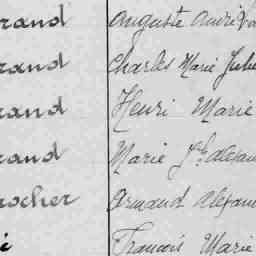 rand Auguste André
rand Charles Marie Jule
rand Henri Marie
rand Marie
rocher Armand Alexan
François Marie